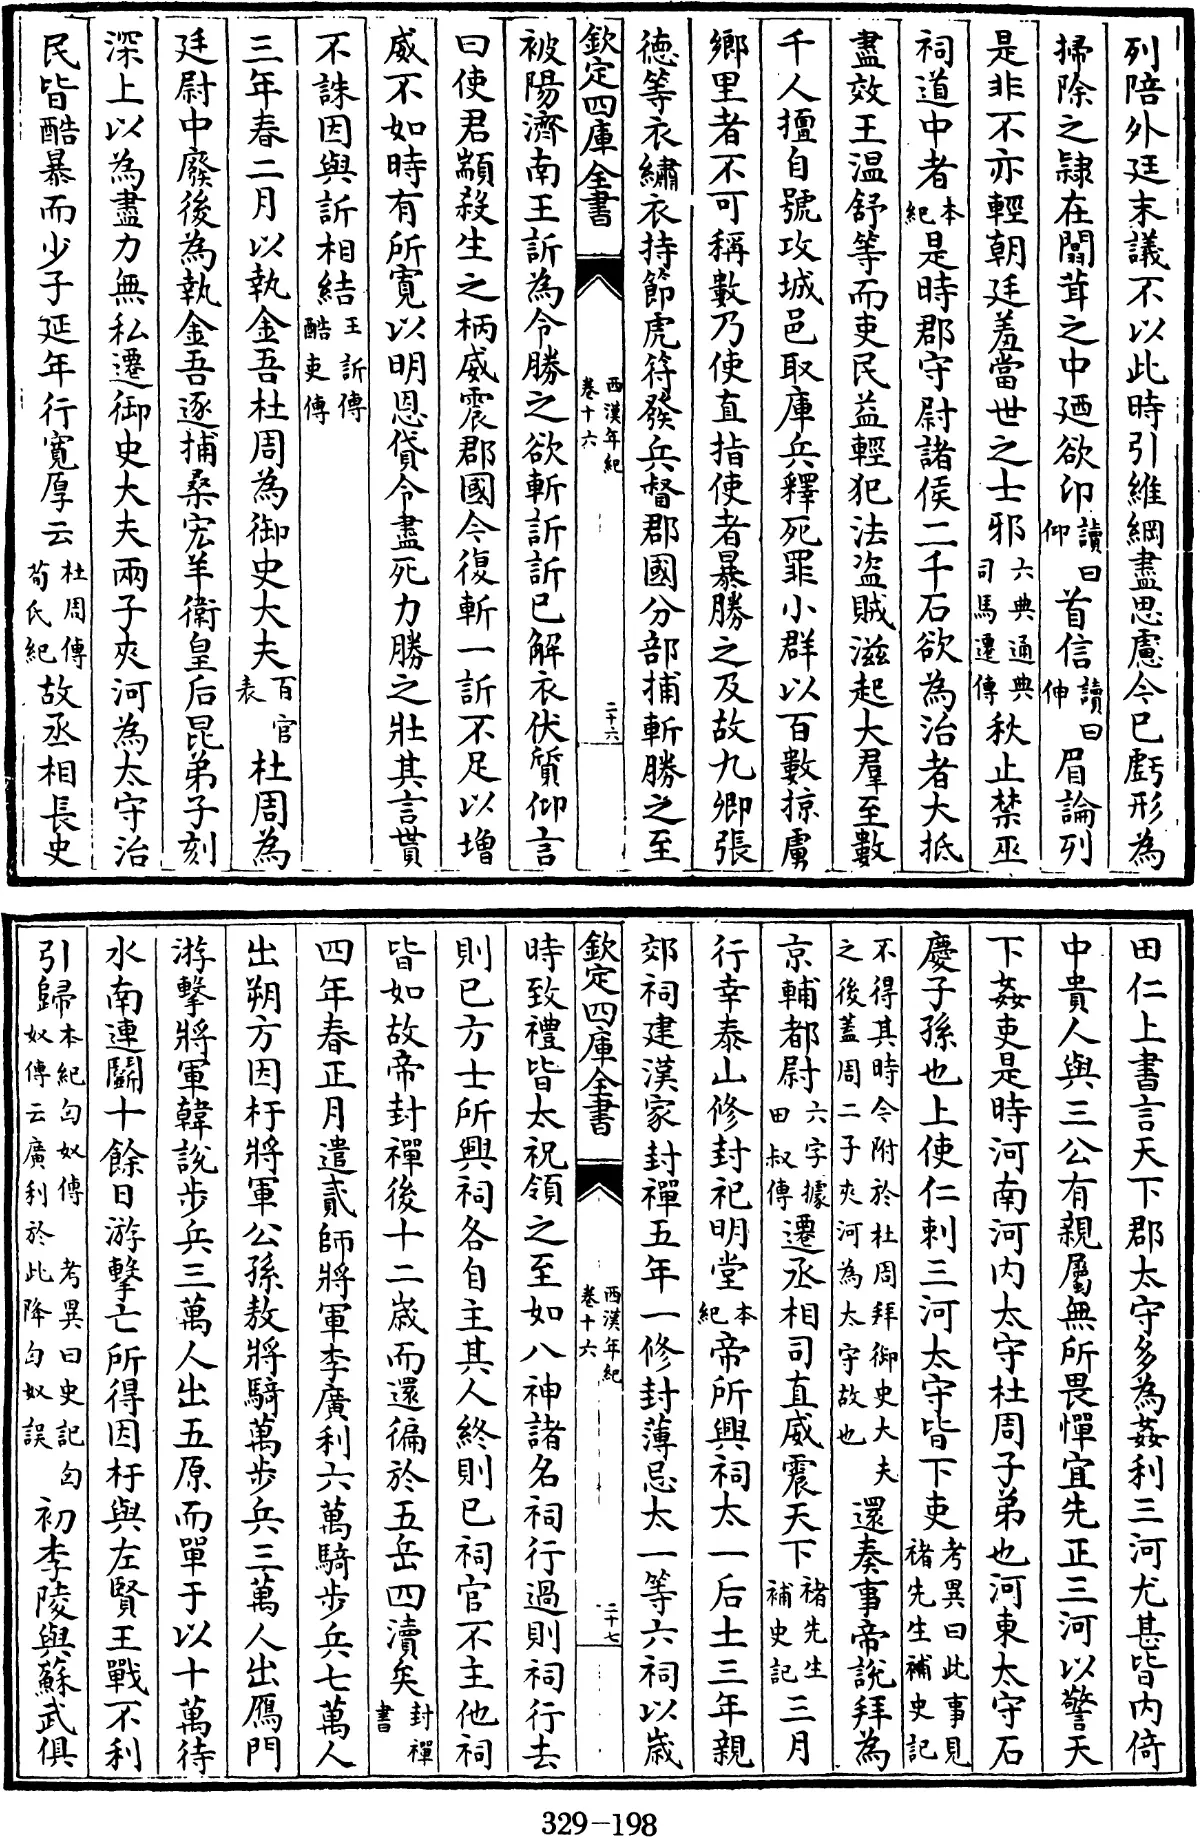 列陪外廷末議不以此時引維綱盡思慮今已虧形為
掃除之隸在闒茸之中廼欲卬讀曰仰首信讀曰伸眉論列
是非不亦輕朝廷羞當世之士邪六典通典司馬遷傳秋止禁巫
祠道中者本紀是時郡守尉諸侯二千石欲為治者大抵
盡效王温舒等而吏民益輕犯法盜賊滋起大羣至數
千人擅自號攻城邑取庫兵釋死罪小群以百數掠鹵
鄉里者不可稱數乃使直指使者暴勝之及故九卿張
德等衣繡衣持節虎符發兵督郡國分部捕斬勝之至
欽定四庫全書 西漢年紀卷十六 二十六
被陽濟南王訢為令勝之欲斬訢訢已解衣伏質仰言
曰使君顓殺生之柄威震郡國今復斬一訢不足以增
威不如時有所寛以明恩貸令盡死力勝之壯其言貰
不誅因與訢相結王訢傳酷吏傳
三年春二月以執金吾杜周為御史大夫百官表杜周為
廷尉中廢後為執金吾逐捕桑宏羊衛皇后昆弟子刻
深上以為盡力無私遷御史大夫兩子夾河為太守治
民皆酷暴而少子延年行寛厚云杜周傳荀氏紀故丞相長史
田仁上書言天下郡太守多為姦利三河尤甚皆内倚
中貴人與三公有親屬無所畏憚宜先正三河以警天
下姦吏是時河南河内太守杜周子弟也河東太守石
慶子孫也上使仁刺三河太守皆下吏考異曰此事見褚先生補史記
不得其時今附於杜周拜御史大夫之後蓋周二子夾河為太守故也還奏事帝說拜為
京輔都尉六字據田叔傳遷丞相司直威震天下褚先生補史記三月
行幸泰山修封祀明堂本紀帝所興祠太一后土三年親
郊祠建漢家封禪五年一修封薄忌太一等六祠以歲
欽定四庫全書 西漢年紀卷十六 二十七
時致禮皆太祝領之至如八神諸名祠行過則祠行去
則已方士所興祠各自主其人終則已祠官不主他祠
皆如故帝封禪後十二歲而還徧於五岳四瀆矣封禪書
四年春正月遣貳師將軍李廣利六萬騎步兵七萬人
出朔方因杅將軍公孫敖將騎萬步兵三萬人出鴈門
游擊將軍韓說步兵三萬人出五原而單于以十萬待
水南連鬭十餘日游擊亡所得因杅與左賢王戰不利
引歸本紀匈奴傳 考異曰史記匈奴傳云廣利於此降匈奴誤初李陵與蘇武俱
329-198